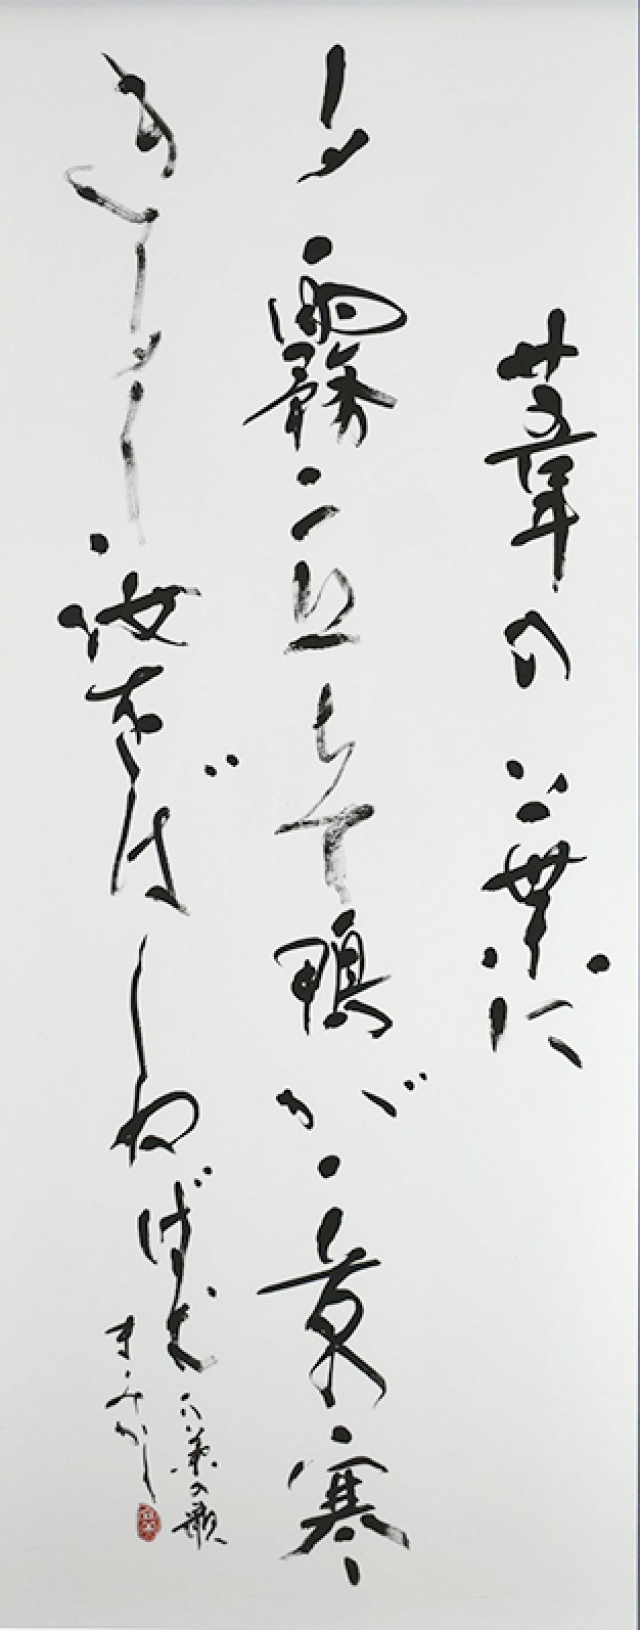 葦の葉に
夕霧立ちて鴨が音の寒
き夕し汝をばしぬばむ
万葉の歌